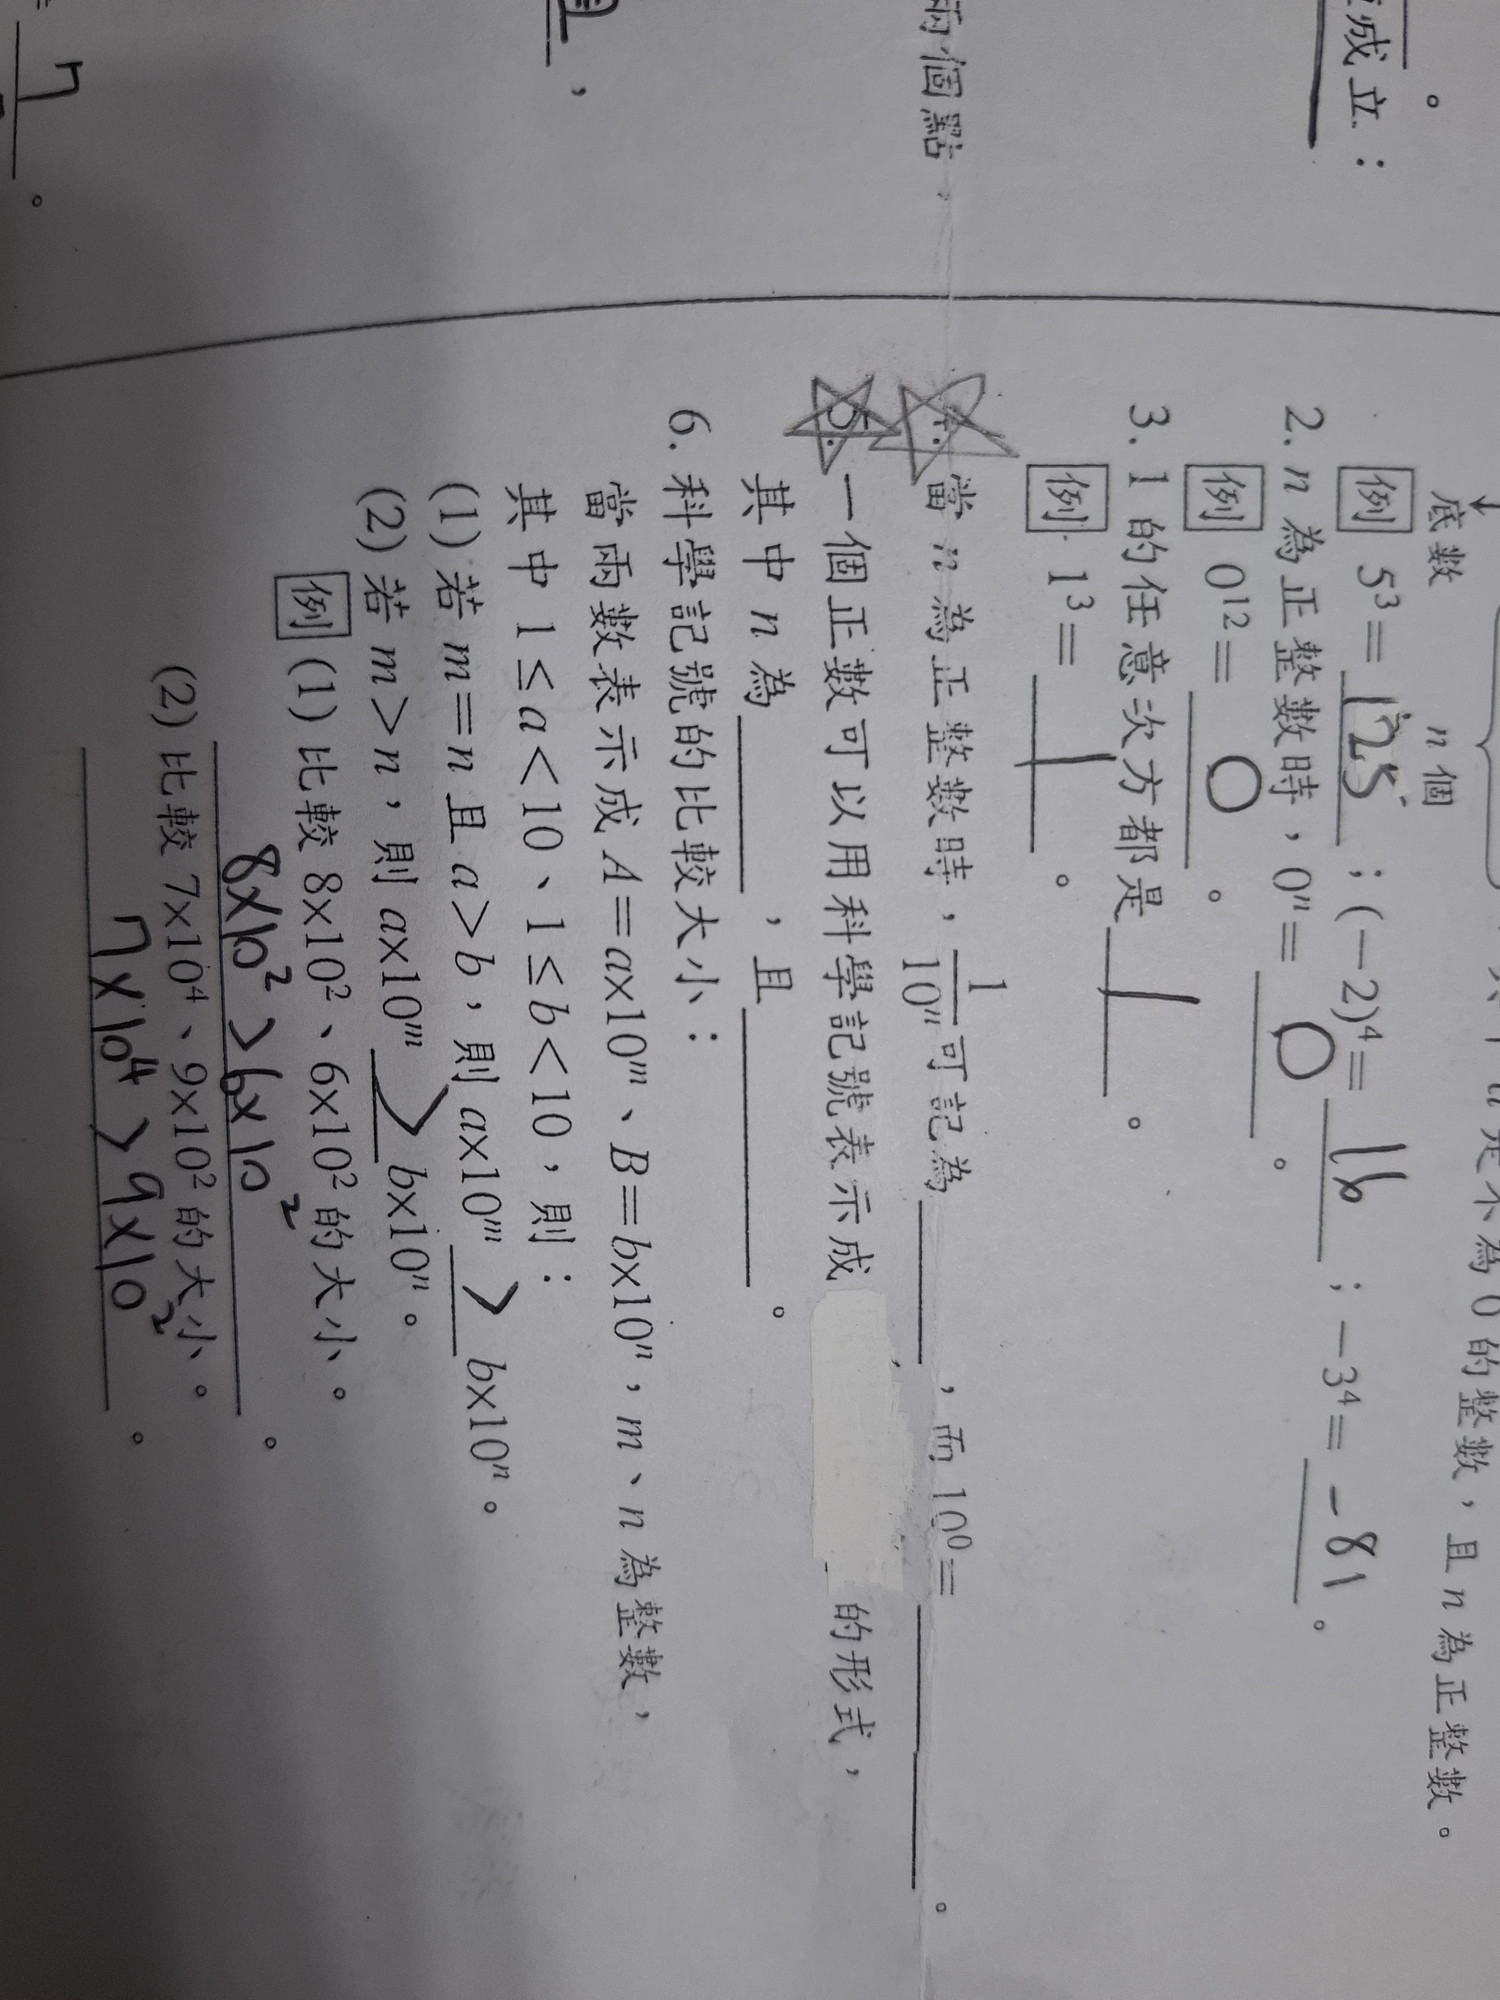 。
成立：
兩個點，
，
7
。
底數 n個
是不為 0 的整數，且 n 為正整數。
例 5³＝125；(－2)⁴＝16；－3⁴＝－81。
2. n 為正整數時，0ⁿ＝0。
例 0¹²＝0。
3. 1 的任意次方都是1。
例 1³＝1。
4. 當 n 為正整數時，1/10ⁿ可記為____，而 10⁰＝____。
5. 一個正數可以用科學記號表示成____的形式，
其中 n 為____，且____。
6. 科學記號的比較大小：
當兩數表示成 A＝a×10ᵐ、B＝b×10ⁿ，m、n 為整數，
其中 1≤a＜10、1≤b＜10，則：
(1) 若 m＝n 且 a＞b，則 a×10ᵐ ＞ b×10ⁿ。
(2) 若 m＞n，則 a×10ᵐ ＞ b×10ⁿ。
例 (1) 比較 8×10²、6×10² 的大小。
8×10²＞6×10²。
(2) 比較 7×10⁴、9×10² 的大小。
7×10⁴＞9×10²。